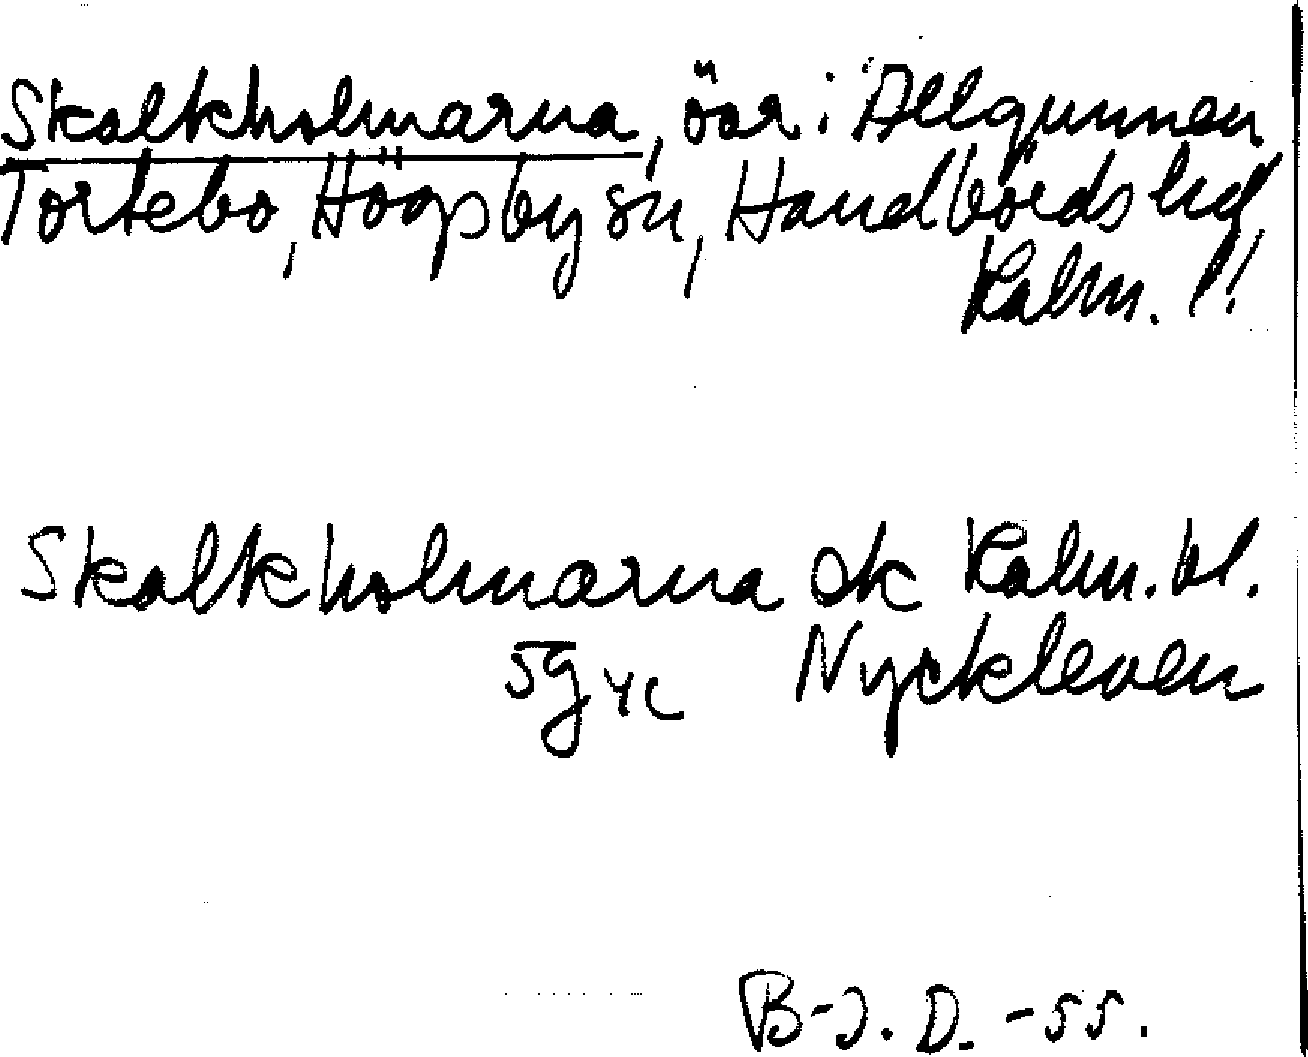 Skalkholmarna, öar i Allgunnen
Tortebo, Högsby sn, Handbörds hd
Kalm. l!
Skalkholmarna ek Kalm. bl.
5g 4c Nyckleven
B-J. D. -55.